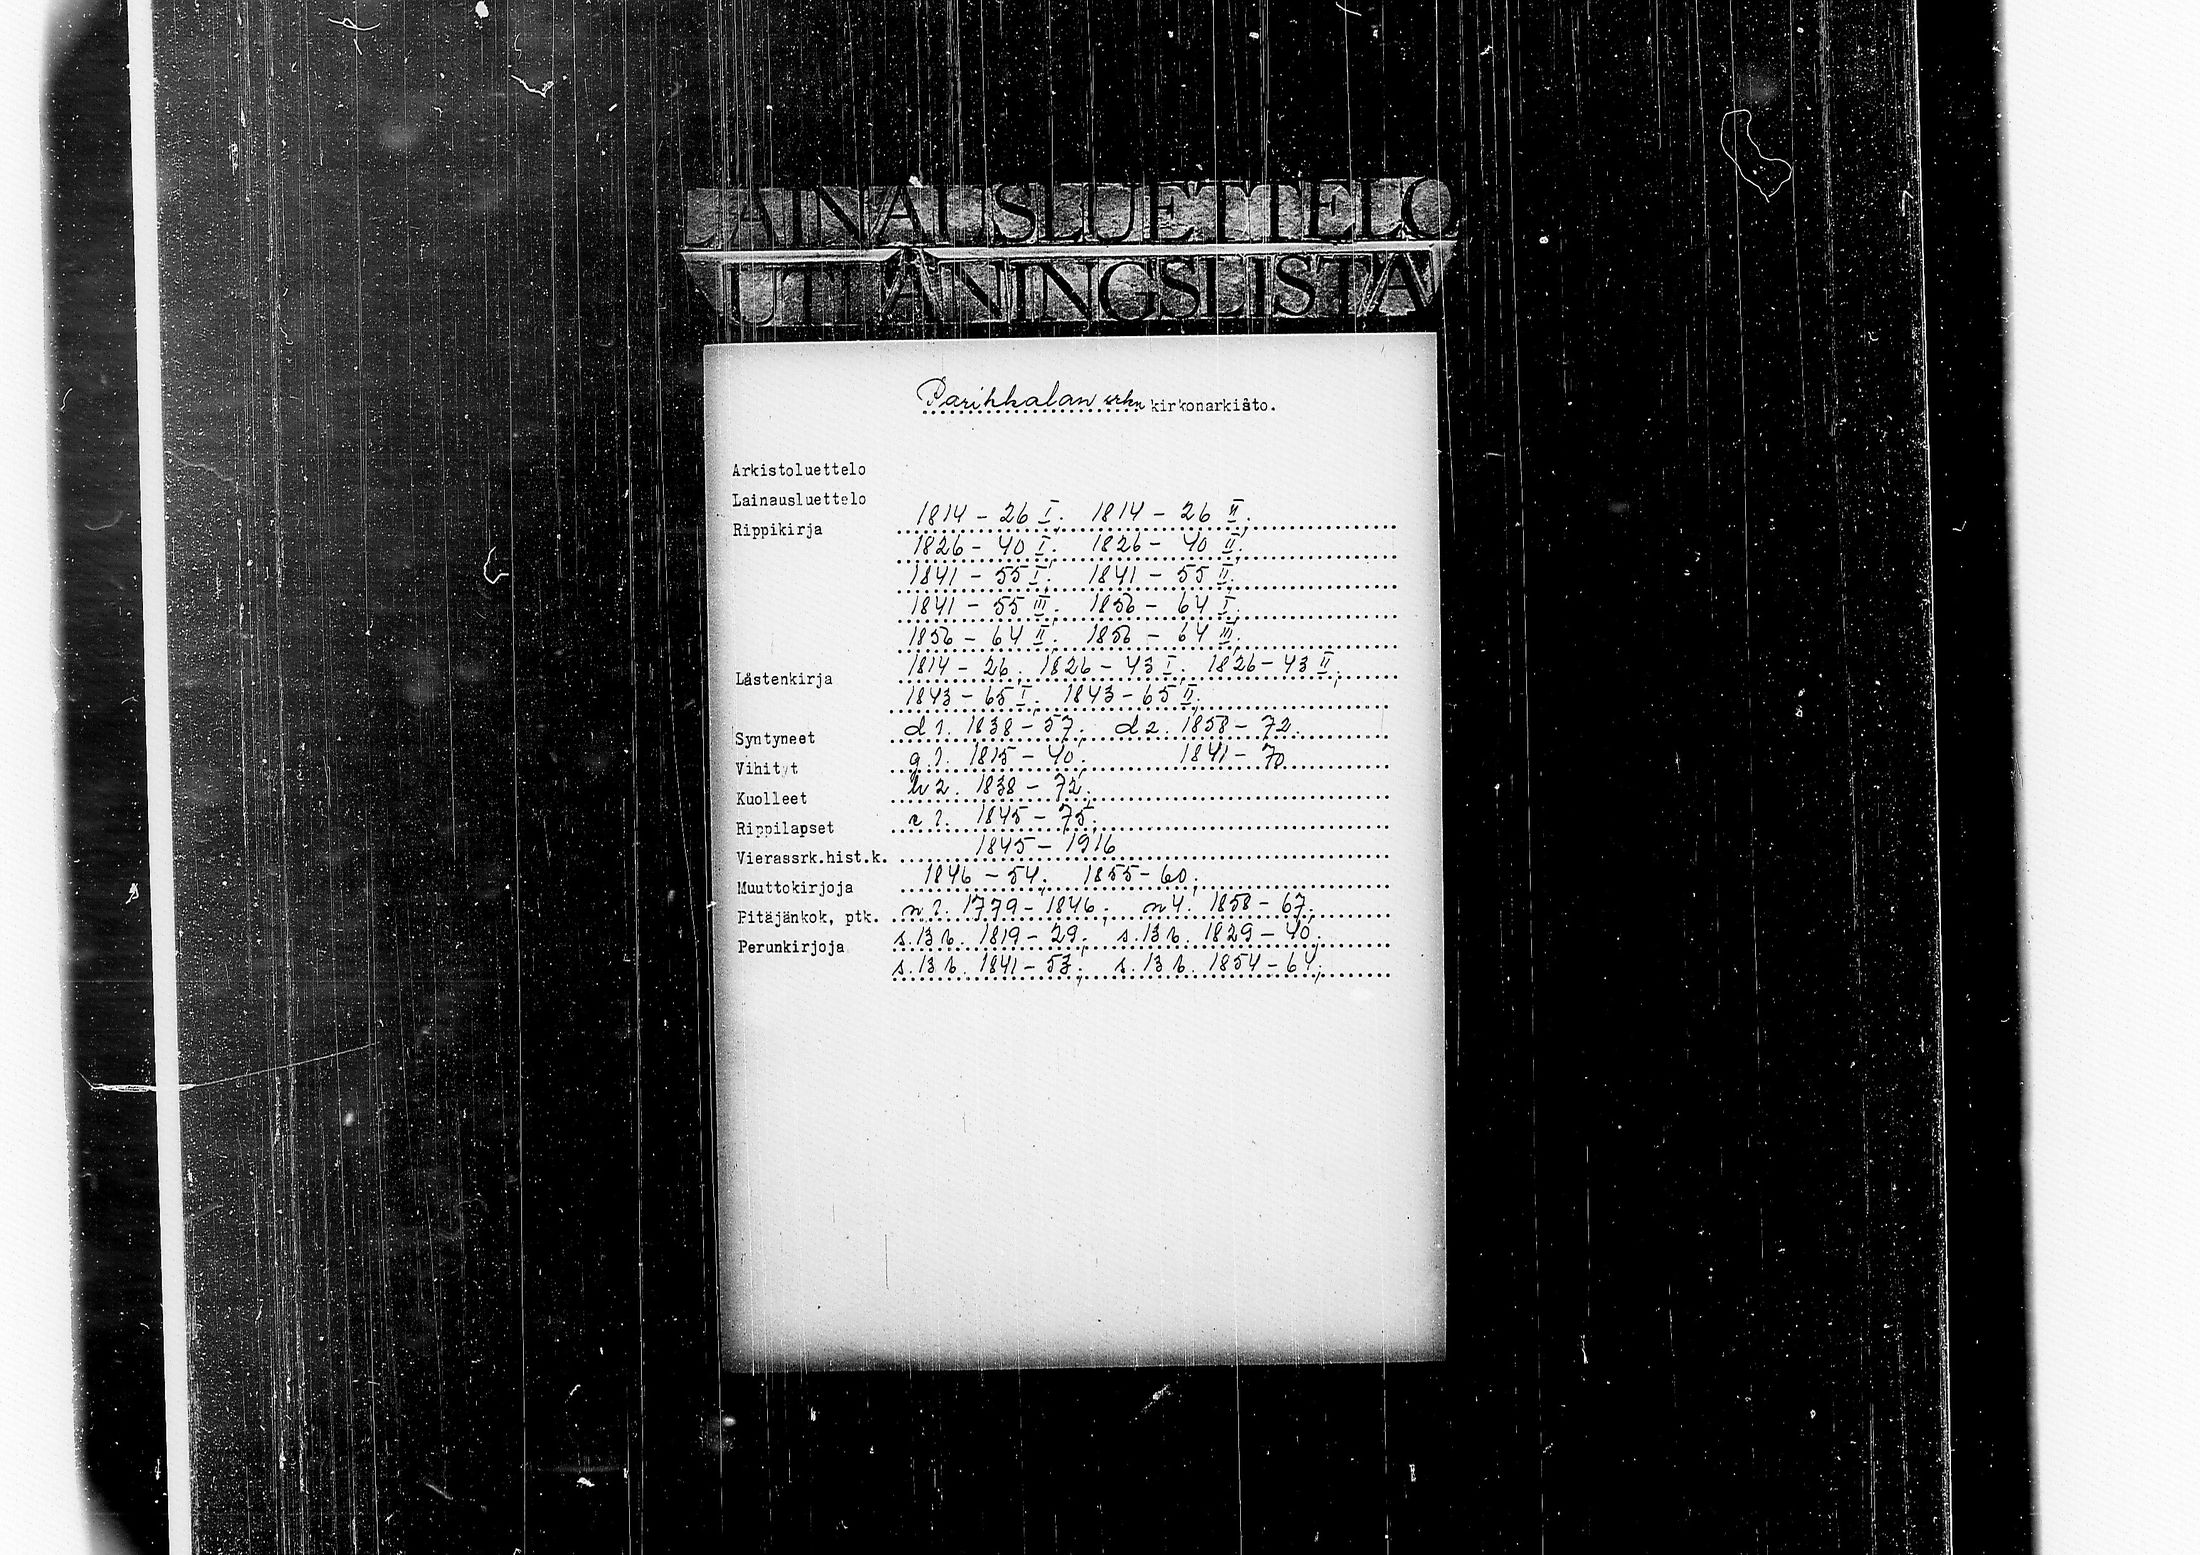 LAINAUSLUETTELO
UTLÅNINGSLISTA
Parikkalan srkn kirkonarkisto.
Arkistoluettelo
Lainausluettelo
Rippikirja 1814 - 26 I; 1814 - 26 II;
1826 - 40 I; 1826 - 40 II;
1841 - 55 I; 1841 - 55 II;
1841 - 55 III; 1856 - 64 I;
1856 - 64 II; 1856 - 64 III;
Lastenkirja 1814 - 26; 1826 - 43 I; 1826 - 43 II;
1843 - 65 I; 1843 - 65 II;
Syntyneet d 1. 1838 - 57; d 2. 1858 - 72.
Vihityt g. 1. 1815 - 40; 1841 - 70
Kuolleet h 2. 1838 - 72;
Rippilapset 1. 1845 - 75;
Vierassrk.hist.k. 1845 - 1916
Muuttokirjoja 1846 - 54; 1855 - 60;
Pitäjänkok, ptk. n 1. 1779 - 1846; n 4. 1858 - 67;
Perunkirjoja s. 13 b. 1819 - 29; s. 13 b. 1829 - 40;
s. 13 b. 1841 - 53; s. 13 b. 1854 - 64;